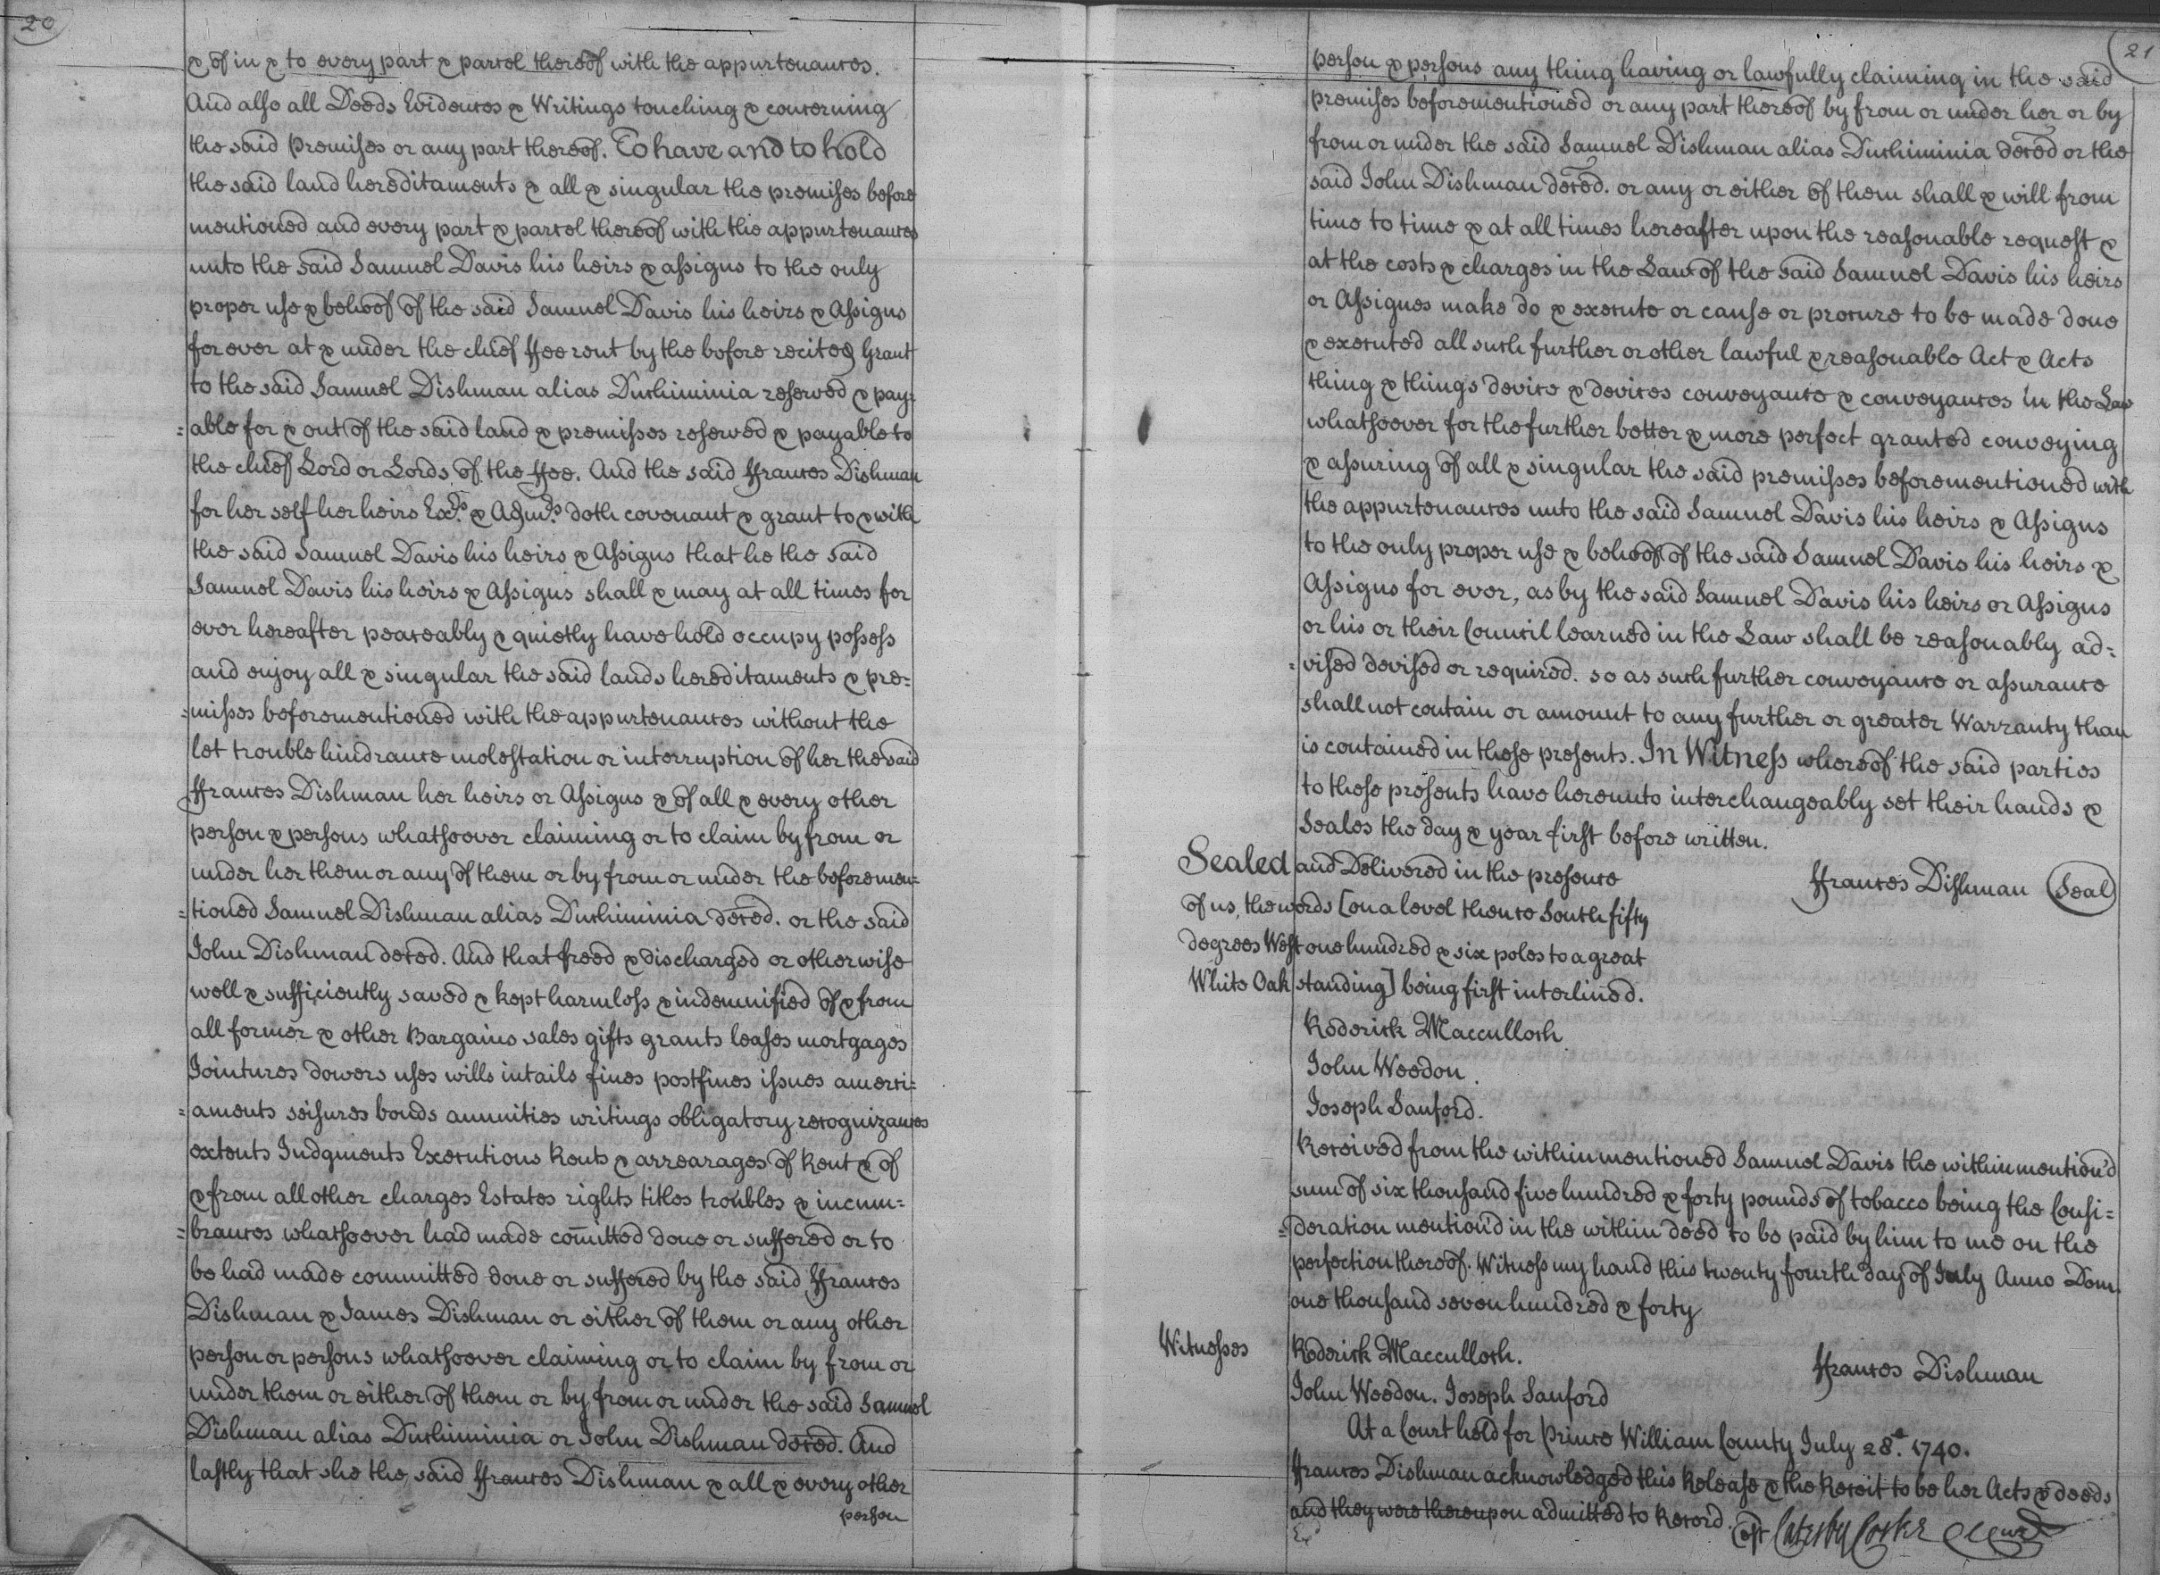 20
& of in & to every part & parcel thereof with the appurtenances.
And also all Deeds Evidences & Writings touching & concerning
the said Premises or any part thereof. To have and to hold
the said land hereditaments & all & singular the premises before
mentioned and every part & parcel thereof with the appurtenances
unto the said Samuel Davis his heirs & assigns to the only
proper use & behoof of the said Samuel Davis his heirs & Assigns
for ever at & under the chief ffee rent by the before recited Grant
to the said Samuel Dishman alias Duchiminia reserved & pay=
=able for & out of the said land & premisses reserved & payable to
the chief Lord or Lords of the ffee. And the said ffrances Dishman
for her self her heirs Exrs. & Admrs. doth covenant & grant to & with
the said Samuel Davis his heirs & Assigns that he the said
Samuel Davis his heirs & Assigns shall & may at all times for
ever hereafter peaceably & quietly have hold occupy possess
and enjoy all & singular the said lands hereditaments & pre=
=misses beforementioned with the appurtenances without the
let trouble hindrance molestation or interruption of her the said
ffrances Dishman her heirs or Assigns & of all & every other
person & persons whatsoever claiming or to claim by from or
under her them or any of them or by from or under the beforemen=
=tioned Samuel Dishman alias Duchiminia deced. or the said
John Dishman deced. And that freed & discharged or otherwise
well & sufficiently saved & kept harmless & indemnified of & from
all former & other Bargains sales gifts grants leases mortgages
Jointures dowers uses wills intails fines postfines issues amerci=
=aments seisures bonds annuities writings obligatory recognizances
extents Judgments Executions Rents & arrearages of Rent & of
& from all other charges Estates rights titles troubles & incum=
=brances whatsoever had made comitted done or suffered or to
be had made committed done or suffered by the said ffrances
Dishman & James Dishman or either of them or any other
person or persons whatsoever claiming or to claim by from or
under them or either of them or by from or under the said Samuel
Dishman alias Duchiminia or John Dishman deced. And
lastly that she the said ffrances Dishman & all & every other
person
21
person & persons any thing having or lawfully claiming in the said
premises beforementioned or any part thereof by from or under her or by
from or under the said Samuel Dishman alias Duchiminia deced or the
said John Dishman deced. or any or either of them shall & will from
time to time & at all times hereafter upon the reasonable request &
at the costs & charges in the Law of the said Samuel Davis his heirs
or Assignes make do & execute or cause or procure to be made done
& executed all such further or other lawful & reasonable Act & Acts
thing & things device & devices conveyance & conveyances in the Law
whatsoever for the further better & more perfect granted conveying
& assuring of all & singular the said premisses beforementioned with
the appurtenances unto the said Samuel Davis his heirs & Assigns
to the only proper use & behoof of the said Samuel Davis his heirs &
Assigns for ever, as by the said Samuel Davis his heirs or Assigns
or his or their Council learned in the Law shall be reasonably ad=
=vised devised or required. so as such further conveyance or assurance
shall not contain or amount to any further or greater Warranty than
is contained in these presents. In Witness whereof the said parties
to these presents have hereunto interchangeably set their hands &
Seales the day & year first before written.
Sealed and Delivered in the presence
of us, the words [on a level thence South fifty
degrees West one hundred & six poles to a great
White Oak standing] being first interlined.
ffrances Dishman Seal
Roderick Macculloch.
John Weedon.
Joseph Sanford.
Received from the within mentioned Samuel Davis the within mention'd
sum of six thousand five hundred & forty pounds of tobacco being the Consi=
=deration mention'd in the within deed to be paid by him to me on the
perfection thereof. Witness my hand this twenty fourth day of July Anno Dom.
one thousand seven hundred & forty
Witnesses Roderick Macculloch.
ffrances Dishman
John Weedon. Joseph Sanford
At a Court held for Prince William County July 28th. 1740.
ffrances Dishman acknowledged this Release & the Receit to be her Acts & deeds
and they were thereupon admitted to Record.
Test Catesby Cocke ClCur
Ex